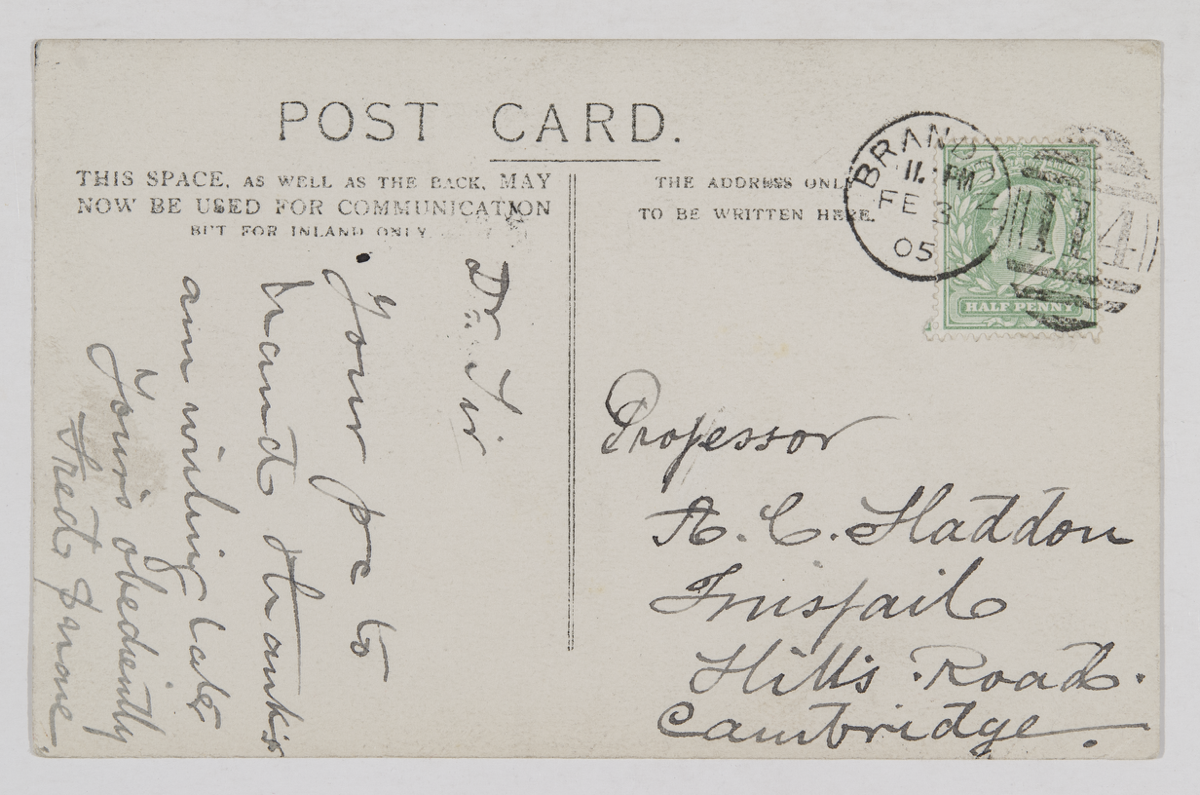 POST CARD.
THIS SPACE, AS WELL AS THE BACK, MAY
NOW BE USED FOR COMMUNICATION
BUT FOR INLAND ONLY.
THE ADDRESS ONLY
TO BE WRITTEN HERE.
BRANDON
11. PM
FE 3
05
114
HALF PENNY
Dr Sir
Your pc to
hand thanks
am writing later
Yours obediently
Fred Snare.
Professor
A. C. Haddon
Inisfail
Hills Road.
Cambridge.